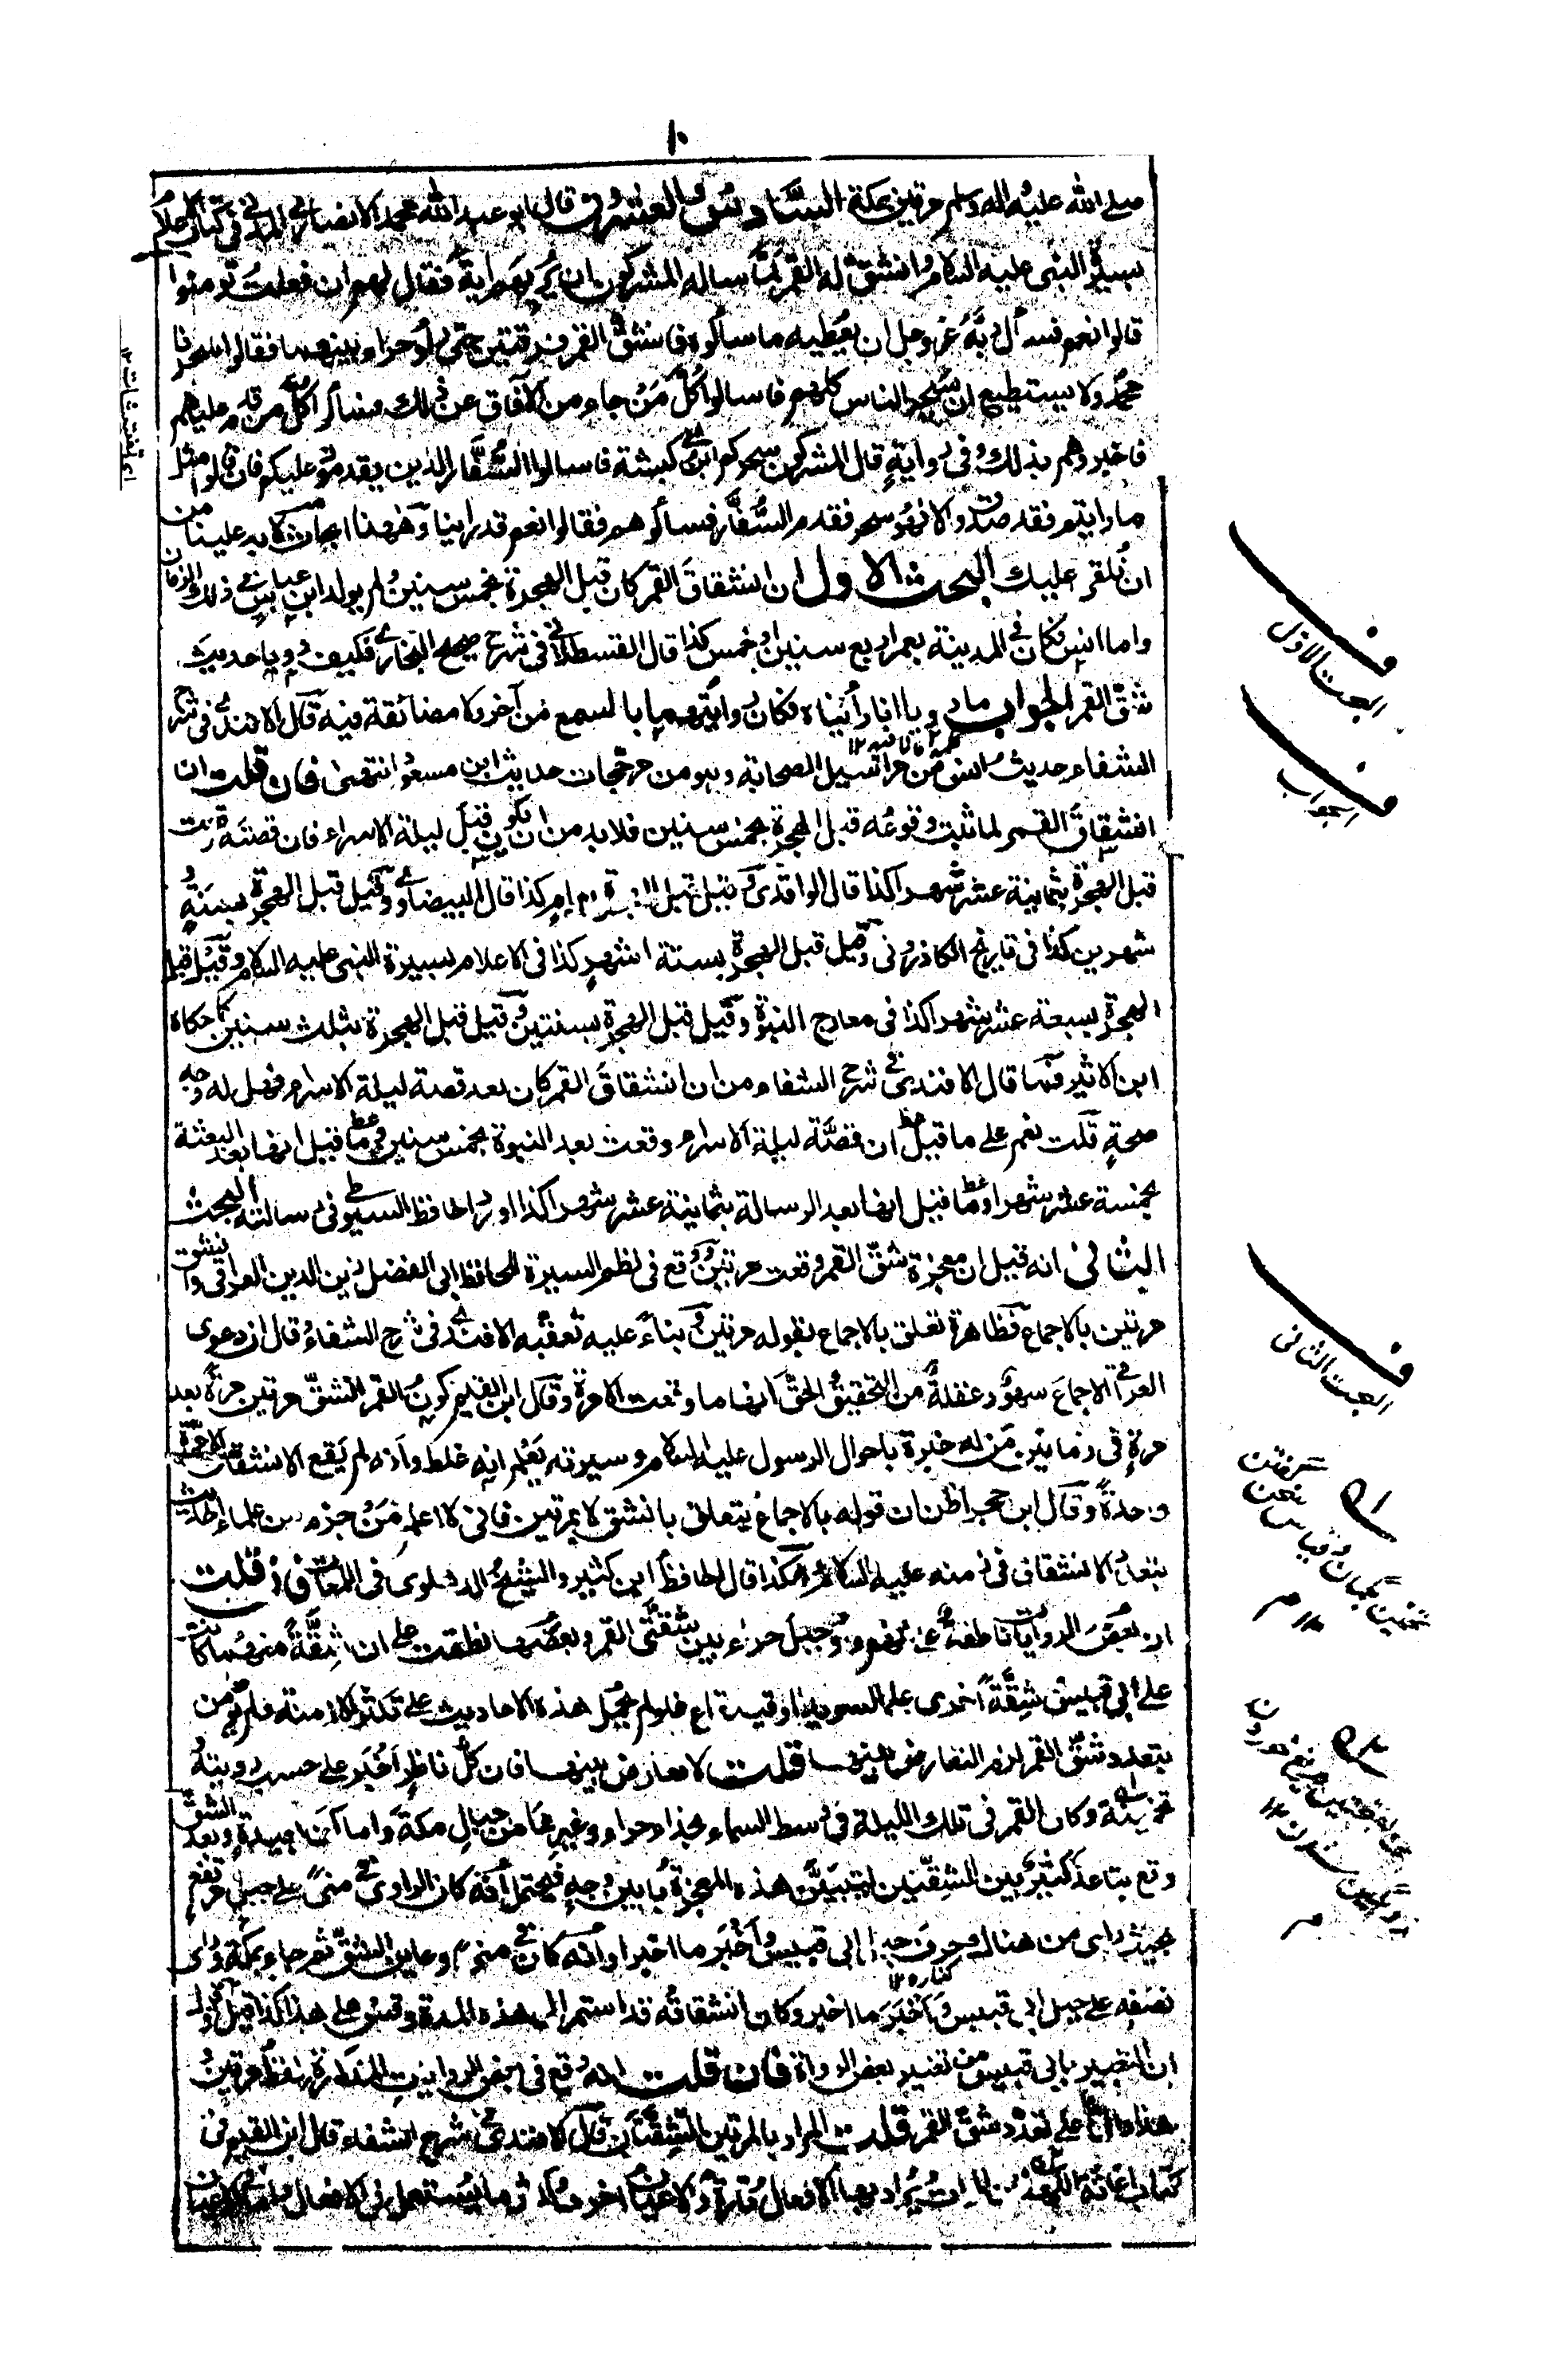 ١٠
صلے الله عليه واله وسلم مرتين بمكة السادس والعشرون قال ابو عبد الله محمد الانصاري المدني في كتاب الاعلام
بسير النبي عليه السلام وانشق له القمر لما ساله المشركون ان يريهم اية فقال لهم ان فعلت تومنوا
قالوا نعم فسأل ربه عز وجل ان يعطيه ما سألوه فانشق القمر فرقتين حتى رأوا حراء بينهما فقالوا سحرنا
محمد ولا يستطيع ان يسحر الناس كلهم فاسالوا كل من جاء من الآفاق عن ذلك فسألوا كل من قدم عليهم
فاخبروهم بذلك وفي رواية قال المشركون سحركم ابن ابي كبشة فاسالوا السفار الذين يقدمون عليكم فان قالوا مثل
ما رايتم فقد صدق والا فهو سحر فقدم السفار فسألوهم فقالوا نعم قد راينا وههنا ابحاث لابد علينا من
ان نلقي عليك البحث الاول ان انشقاق القمر كان قبل الهجرة بخمس سنين ولم يولد ابن عباس في ذلك الزمان
واما انس فكان في المدينة بعمر اربع سنين او خمس كذا قال القسطلاني في شرح صحيح البخاري فكيف رويا حديث
شق القمر الجواب ما رويا انا رأيناه فكان روايتهما بالسمع من آخر ولا مضائقة فيه قال الافندي في شرح
الشفاء حديث انس من مراسيل الصحابة وهو من مرجحات حديث ابن مسعود انتهى فان قلت ان
انشقاق القمر لما ثبت وقوعه قبل الهجرة بخمس سنين فلابد من ان يكون قبل ليلة الاسراء فان قصته وقعت
قبل الهجرة بثمانية عشر شهرا كذا قال الواقدي وقيل قبل الهجرة كذا قال البيضاوي وقيل قبل الهجرة بسنة و
شهرين كذا في تاريخ الكاذروني وقيل قبل الهجرة بستة اشهر كذا في الاعلام بسيرة النبي عليه السلام وقيل قبل
الهجرة بسبعة عشر شهرا كذا في معارج النبوة وقيل قبل الهجرة بسنتين وقيل قبل الهجرة بثلث سنين كما حكاه
ابن الاثير فما قال الافندي في شرح الشفاء من ان انشقاق القمر كان بعد قصة ليلة الاسراء فهل له وجه
صحة قلت نعم على ما قيل ان قصة ليلة الاسراء وقعت بعد النبوة بخمس سنين وعلى ما قيل انها بعد البعثة
بخمسة عشر شهرا وعلى ما قيل انها بعد الرسالة بثمانية عشر شهرا كذا اورد الحافظ السيوطي في رسالته البحث
الثاني انه قيل ان معجزة شق القمر وقعت مرتين ووقع في نظم السيرة للحافظ ابي الفضل زين الدين العراقي وانشق
مرتين بالاجماع فظاهره تعلق بالاجماع بقوله مرتين وبناء عليه تعقبه الافندي في شرح الشفاء وقال ان دعوى
العراقي الاجماع سهو وغفلة من التحقيق والحق انها ما وقعت الا مرة وقال ابن القيم كون القمر انشق مرتين مرة بعد
مرة في زمانين من له خبرة باحوال الرسول عليه السلام وسيرته يعلم انه غلط وانه لم يقع الانشقاق الا مرة
واحدة وقال ابن حجر اظن ان قوله بالاجماع يتعلق بانشق لا بمرتين فاني لا اعلم من جزم من علماء الحديث
بتعدد الانشقاق في زمنه عليه السلام وهكذا قال الحافظ ابن كثير والشيخ الدهلوي في المعارف فان قلت
ان بعض الروايات ناطقة جبل حراء بين شقتي القمر وبعضها نطقت على ان شقة منهما كانت
على ابي قبيس وشقة اخرى على السويداء او قيقعان فلو لم يحمل هذه الاحاديث على تكثر الازمنة فلم يومن
بتعدد شق القمر لزم التعارض بينهما قلت لا تعارض بينهما فان كل ناظر اخبر على حسب رويته و
تخمينه وكان القمر في تلك الليلة في وسط السماء بحذاء حراء وغيرها من جبال مكة وبعد الشق
وقع تباعد كثير بين الشقتين ليتبين هذه المعجزة بابين وجه فيحتمل أنه كان الراوي في منى على جبل مرتفع
بحيث راى من هناك حرف جبل ابي قبيس واخبر ما اخبر او انه كان في منى وعاين الشق ثم جاء بمكة وراى
نصفه على جبل ابي قبيس واخبر ما اخبر وكان انشقاقه قد استمر الى هذه المدة وقس على هذا كذا قيل
ان التعبير بابي قبيس من تعبير بعض الرواة فان قلت انه وقع في بعض الروايات المذكورة لفظ مرتين و
هذا دال على تعدد شق القمر قلت المراد بالمرتين الشقتان قال الافندي في شرح الشفاء قال ابن القيم في
كتاب اغاثة اللهفان المرات يراد بها الافعال تارة والاعيان اخرى واكثر ما يستعمل في الافعال واما الاعيان
البحث الاول
الجواب
البحث الثاني